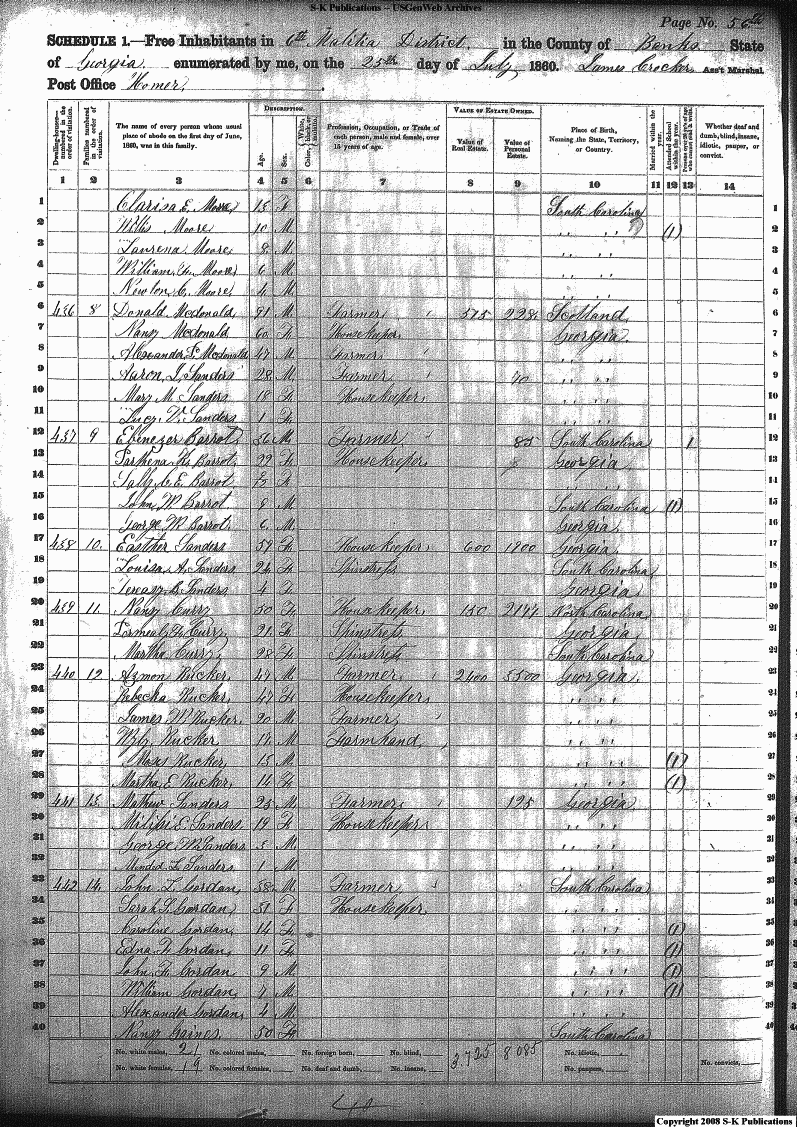 S-K Publications -- USGenWeb Archives
Page No. 56th
SCHEDULE 1.—Free Inhabitants in 6th Malitia District in the County of Banks State
of Georgia enumerated by me, on the 25th day of July 1860. James Crocker Ass't Marshal.
Post Office Homer
Dwelling-houses—numbered in the order of visitation.
Families numbered in the order of visitation.
The name of every person whose usual place of abode on the first day of June, 1860, was in this family.
DESCRIPTION.
Age.
Sex.
Color,
Profession, Occupation, or Trade of each person, male and female, over 15 years of age.
VALUE OF ESTATE OWNED.
Value of Real Estate.
Value of Personal Estate.
Place of Birth, Naming the State, Territory, or Country.
Married within the year.
Attended School within the year.
Whether deaf and dumb, blind, insane, idiotic, pauper, or convict.
1 2 3 4 5 6 7 8 9 10 11 12 13 14
1 Clarisa E. Moore 15 F South Carolina 1
2 Willis Moore 10 M " " (1) 2
3 Moore 8 M " " 3
4 William H. Moore 6 M " " 4
5 Newton C. Moore 4 M " " 5
6 436 8 Donald Mcdonald 81 M Farmer 575 Scotland 6
7 Nancy Mcdonald 60 F House keeper Georgia 7
8 Alexander Mcdonald 47 M Farmer " " 8
9 Aaron J. Sanders 28 M Farmer 70 " " 9
10 Mary M. Sanders 18 F House keeper " " 10
11 Lucy V. Sanders 1 F 11
12 437 9 Ebenezer Barrot 36 M Farmer 85 South Carolina 1 12
13 Barrot 29 F House keeper Georgia 13
14 Sally C. E. Barrot F 14
15 John W. Barrot 8 M South Carolina (1) 15
16 George W. Barrot 6 M Georgia 16
17 438 10 Easther Sanders 59 F House keeper 600 1200 Georgia 17
18 Louisa A. Sanders 24 F Spinstress South Carolina 18
19 Sanders 4 F Georgia 19
20 439 11 Nancy Curry 50 F House keeper 150 North Carolina 20
21 Curry 21 F Spinstress Georgia 21
22 Martha Curry 28 F Spinstress South Carolina 22
23 440 12 Azmon Rucker 47 M Farmer 2400 5500 Georgia 23
24 Rebecka Rucker 47 F House keeper " " 24
25 James W. Rucker 20 M Farmer " " 25
26 Rucker 17 M Farm hand " " 26
27 Moses Rucker 15 M " " (1) 27
28 Martha E. Rucker 14 F " " (1) 28
29 441 13 Mathew Sanders 25 M Farmer 125 Georgia 29
30 E. Sanders 19 F House keeper " " 30
31 George M. Sanders 3 M " " 31
32 Sanders 1 M " " 32
33 442 14 John L. Gordan 58 M Farmer South Carolina 33
34 Sarah S. Gordan 51 F House keeper " " 34
35 Caroline Gordan 14 F " " (1) 35
36 Edna F. Gordan 11 F " " (1) 36
37 John F. Gordan 9 M " " (1) 37
38 William Gordan 7 M " " (1) 38
39 Alexander Gordan 4 M " " 39
40 Nancy Gaines 50 F South Carolina 40
No. white males, 21 No. colored males, No. foreign born, No. blind, 3,725 8085 No. idiotic,
No. white females, 19 No. colored females, No. deaf and dumb, No. insane, No. paupers, No. convicts,
40
Copyright 2008 S-K Publications